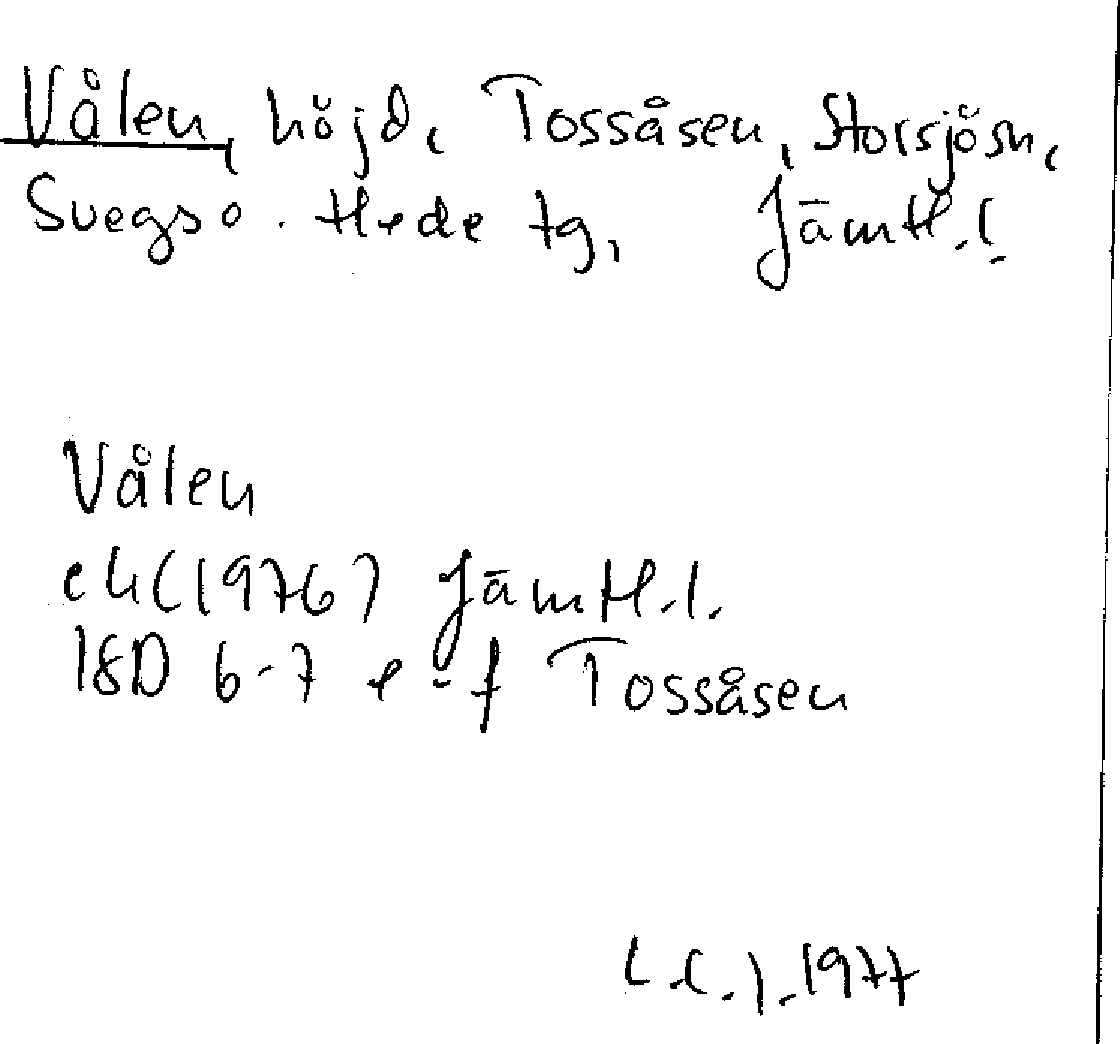 Vålen, höjd, Tossåsen, Storsjösn,
Svegs o. Hede tg, Jämtl. l.
Vålen
ek (1976) Jämtl. l.
18D 6-7 e-f Tossåsen
1977